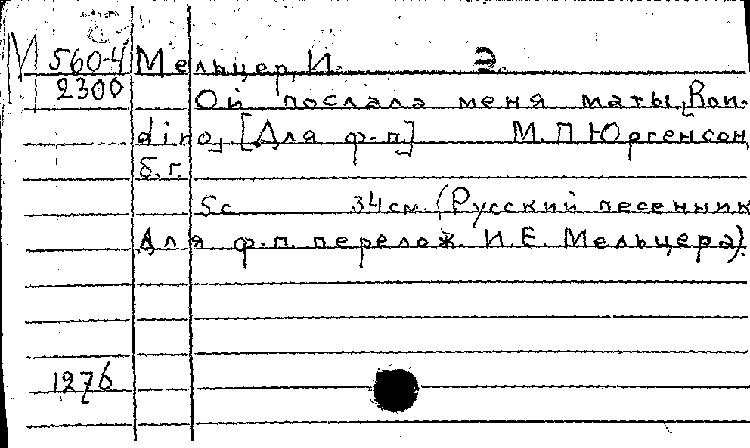 М 560-4 Мельцер, И. Э.
2300 Ой послала меня маты, [Ron-
dino]. [Для ф-п] М. П Юргенсон,
б. г.
5с 34 см. (Русский песенник
Для ф.-п. перелож. И. Е. Мельцера).
1276